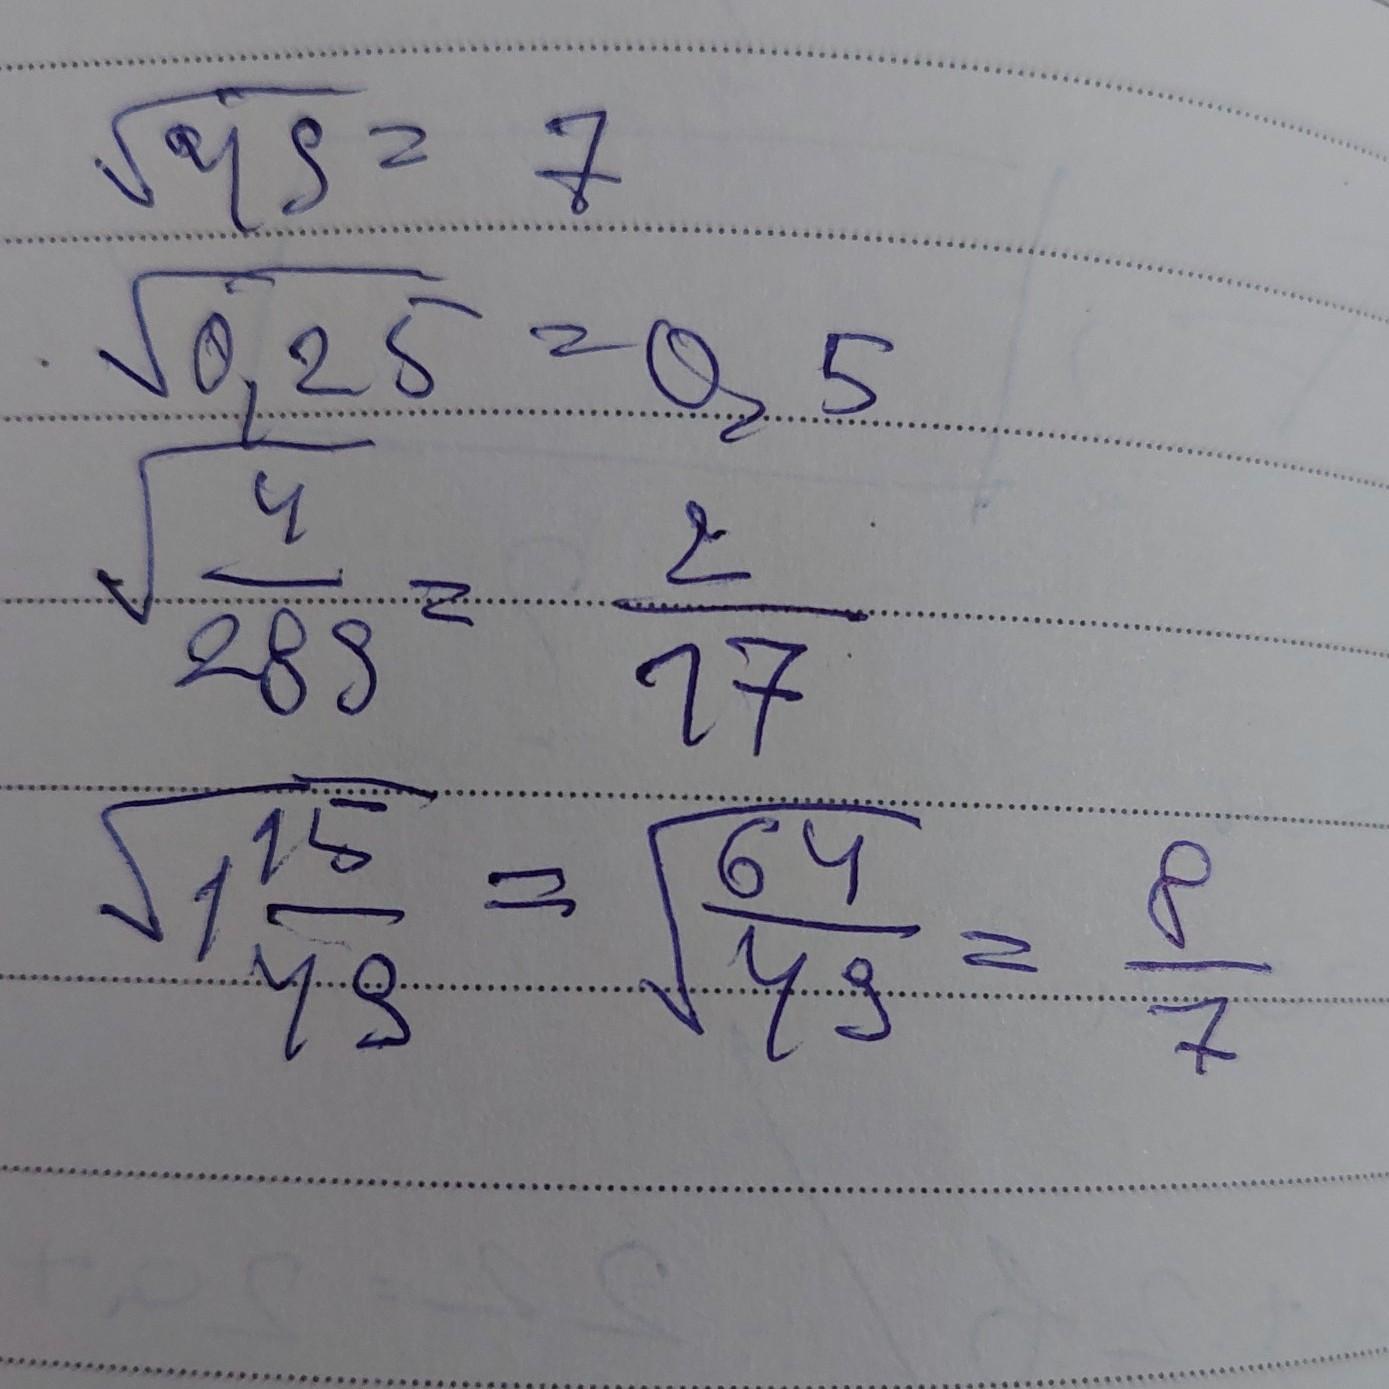 √49 = 7
√0,25 = 0,5
√(4/289) = 2/17
√(1 15/49) = √(64/49) = 8/7